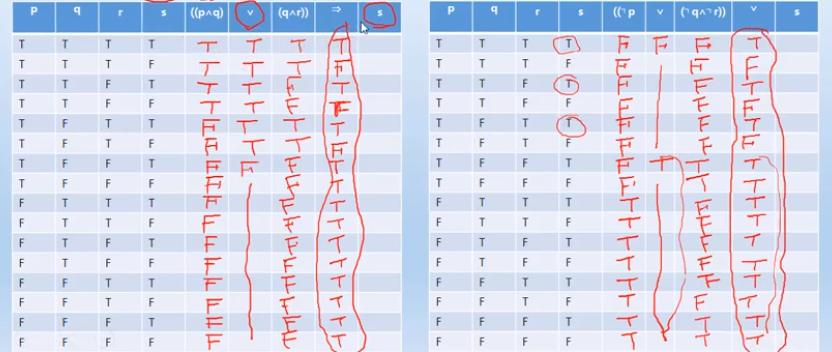 p q r s ((p∧q) ∨ (q∧r)) ⇒ s
T T T T T T T T
T T T F T T T F
T T F T T T F T
T T F F T T F F
T F T T F T T T
T F T F F T T F
T F F T F F F T
T F F F F F T
F T T T F F T
F T T F F F T
F T F T F F T
F T F F F F T
F F T T F F T
F F T F F F T
F F F T F F T
F F F F F F T
p q r s ((¬p ∨ (¬q∧¬r) ∨ s
T T T T F F F T
T T T F F F F
T T F T F F T
T T F F F F F
T F T T F F T
T F T F F F F
T F F T F T T T
T F F F F T T
F T T T T F T
F T T F T F T
F T F T T F T
F T F F T F T
F F T T T F T
F F T F T F T
F F F T T T T
F F F F T T T